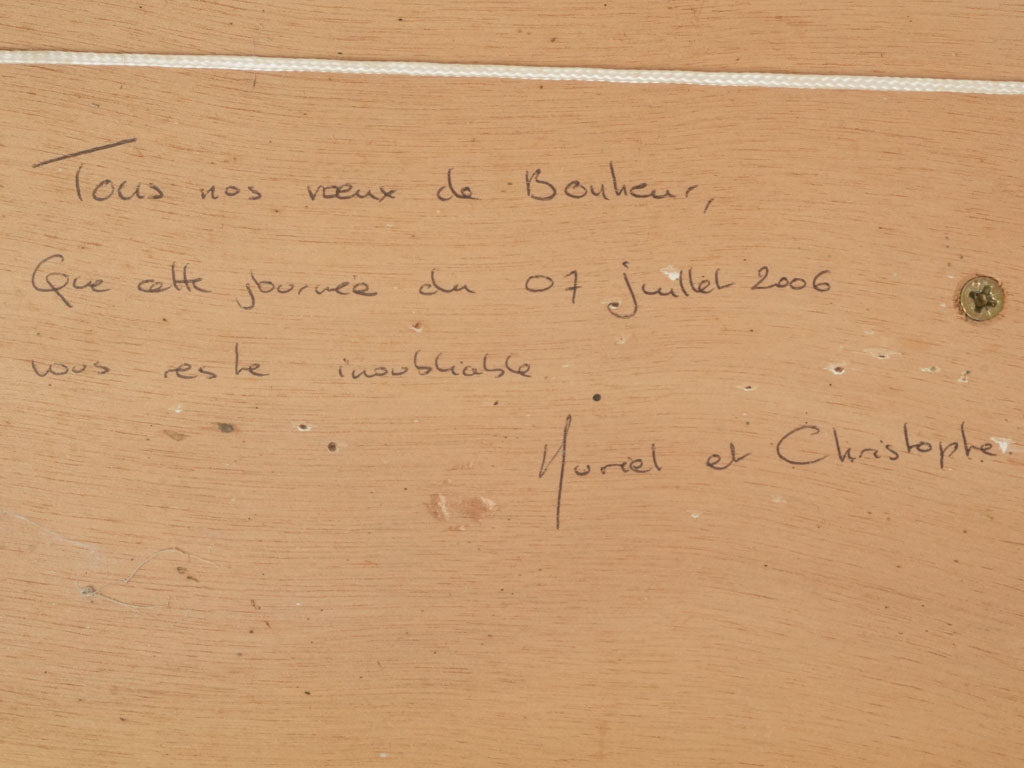 Tous nos vœux de Bonheur,
Que cette journée du 07 juillet 2006
vous reste inoubliable
Muriel et Christophe.